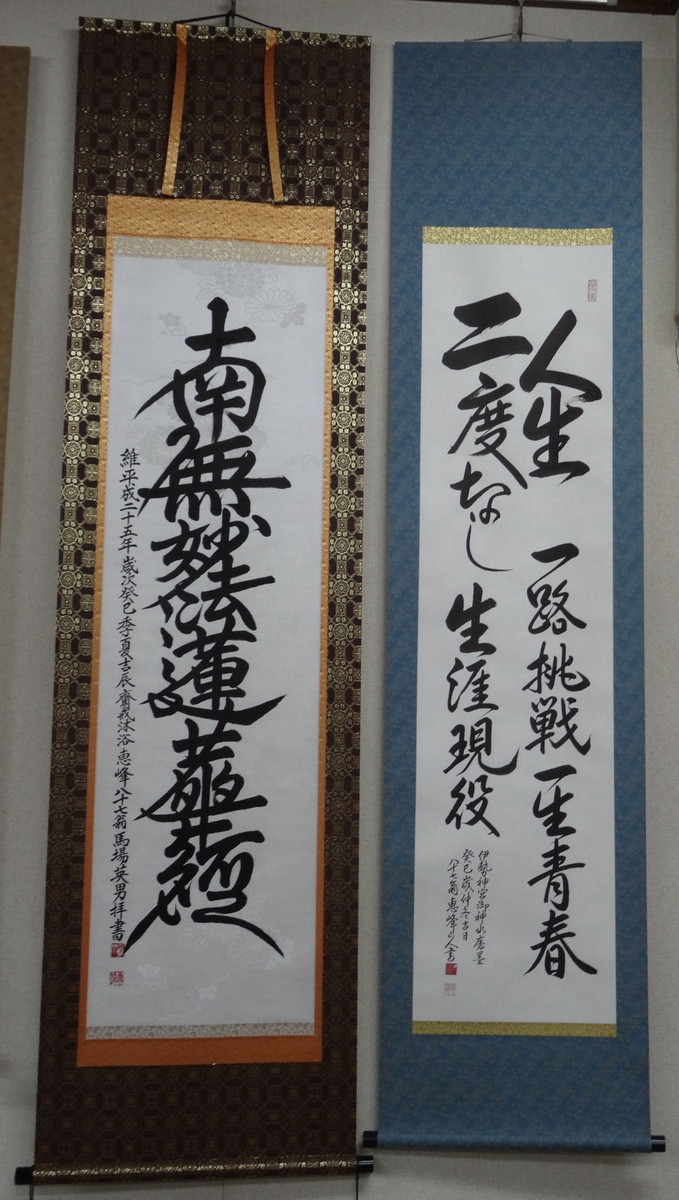 人生 一路挑戦 一生青春
二度なし 生涯現役
伊勢神宮御神水磨墨
癸巳歳仲冬吉日
八十七翁恵峰山人書
南無妙法蓮華経
維平成二十五年歳次癸巳季夏吉辰齋戒沐浴恵峰八十七翁馬場英男拝書